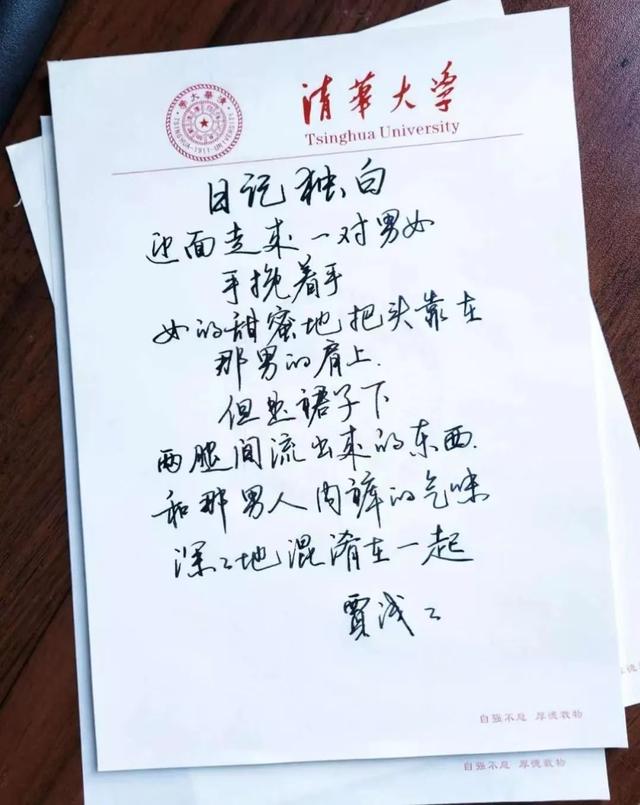 清華大學
TSINGHUA·1911·UNIVERSITY
清華大学
Tsinghua University
日记独白
迎面走来一对男女
手挽着手
女的甜蜜地把头靠在
那男的肩上.
但是裙子下
两腿间流出来的东西.
和那男人内裤的气味
深々地混淆在一起
贾浅々
自强不息 厚德载物
自强不息 厚德载物